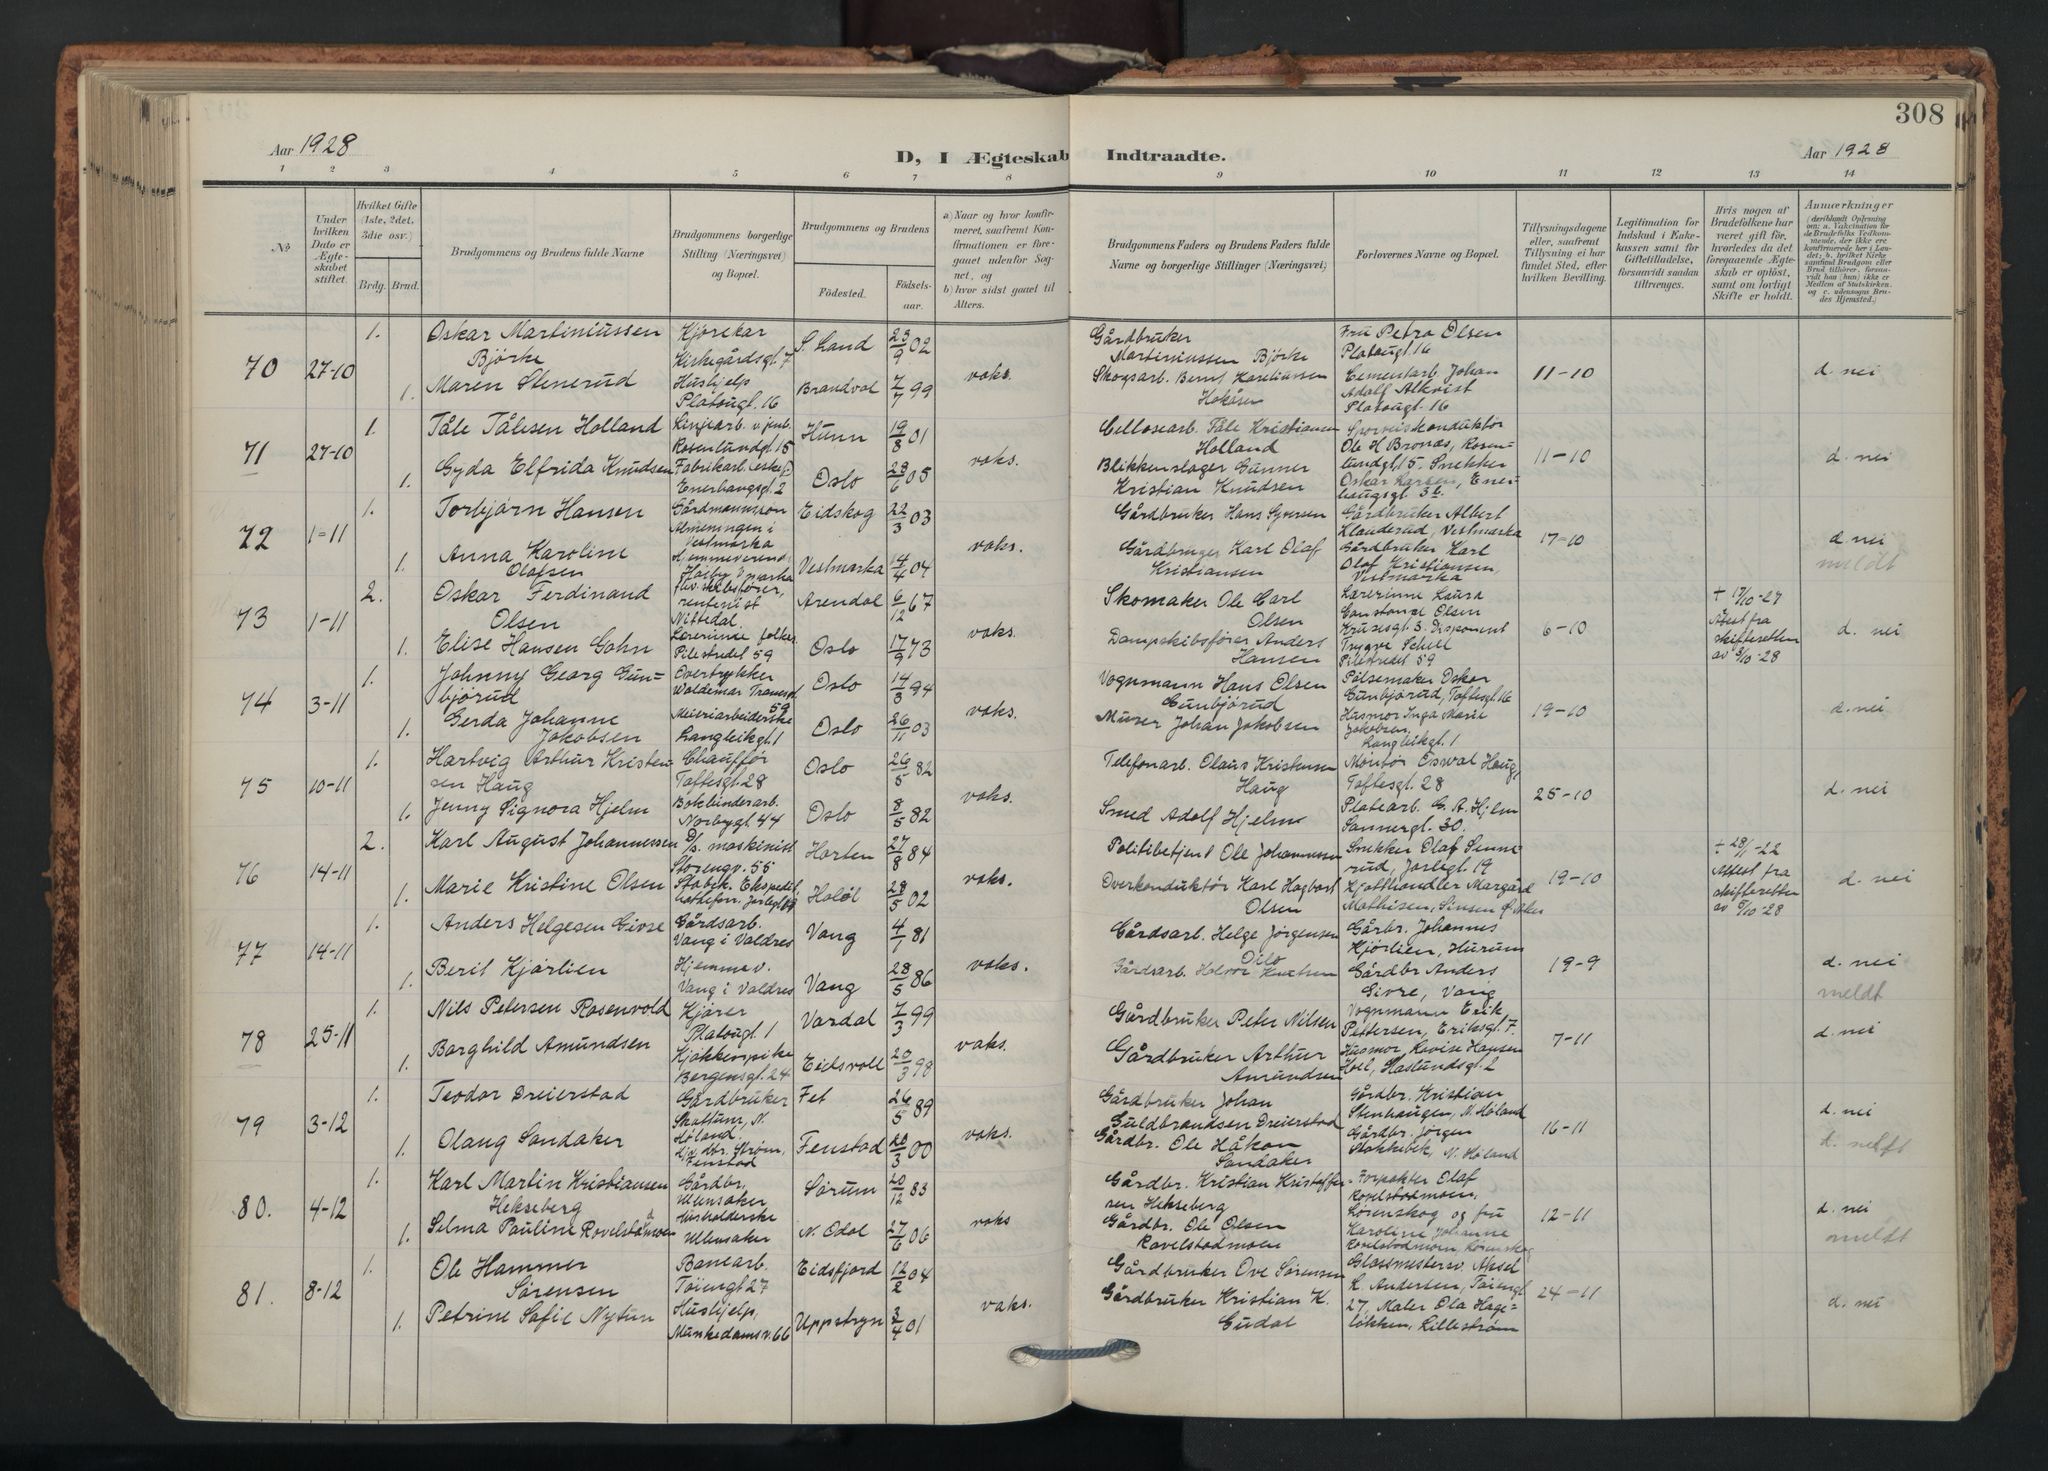 308
Aar 1928
D, I Ægteskab Indtraadte.
Aar 1928
1 2 3 4 5 6 7 8 9 10 11 12 13 14
№
Under hvilken Dato er Ægteskabet stiftet.
Hvilket Gifte (1ste, 2det, 3die osv.)
Brdg. Brud.
Brudgommens og Brudens fulde Navne
Brudgommens borgerlige Stilling (Næringsvei) og Bopæl.
Brudgommens og Brudens
Fødested. Fødselsaar.
a) Naar og hvor konfirmeret, saafremt Konfirmationen er foregaaet udenfor Sognet, og
b) hvor sidst gaaet til Alters.
Brudgommens Faders og Brudens Faders fulde Navne og borgerlige Stillinger (Næringsvei)
Forlovernes Navne og Bopæl.
Tillysningsdagene eller, saafremt Tillysning ei har fundet Sted, efter hvilken Bevilling.
Legitimation for Indskud i Enkekassen samt for Giftetilladelse, forsaavidt saadan tiltrænges.
Hvis nogen af Brudefolkene har været gift før, hvorledes da det foregaaende Ægteskab er opløst, samt om lovligt Skifte er holdt.
Anmærkninger
70 27-10
1. Oskar Martiniussen Bjørke
Kjørekar Kirkegårdsgt. 7
S. Land 23/9 02
Gårdbruker Martiniussen Bjørke
Fru Petra Olsen Platougt. 16
1. Maren Stenerud
Hushjelp Platougt. 16
Brandval 7/7 99
vaks.
Skogsarb. Bernt Karstiansen Hokåsen
Cementarb. Johan Adolf Alkvist Platougt. 16
11-10
d. nei
71 27-10
1. Tåle Tålesen Holland
Linjearb. v. jenb. Rosenlundgt. 15
Hunn 19/8 01
Cellosearb. Tåle Kristiansen Holland
Sporveiskonduktør Ole H Bronås, Rosenlundgt. 15. Snekker Oskar Larsen, Enerhaugsgt. 36.
1. Gyda Elfrida Knudsen
Fabrikarb. Enerhaugsgt. 2
Oslo 23/6 05
vaks.
Blikkenslager Gunner Kristian Knudsen
11-10
d. nei
72 1-11
1. Torbjørn Hansen
Gårdmannssøn Almeningen i Vestmarka
Eidskog 22/3 03
Gårdbruker Hans Syversen
Gårdbruker Albert Klanderud, Vestmarka
1. Anna Karoline Olafsen
Hjemmeværende, Høiby V marka
Vestmarka 14/4 04
vaks.
Gårdbruger Karl Olaf Kristiansen
Gårdbruker Karl Olaf Kristiansen, Vestmarka
17-10
d. nei
meldt
73 1-11
2. Oskar Ferdinand Olsen
fhv. skibsfører, rentenist Nittedal.
Arendal 6/12 67
Skomaker Ole Carl Olsen
Lærerinne Laura Constance Olsen Krusesgt 3. Disponent Trygve Schell Pilestredet 59
1. Elise Hansen Gohn
Lærerinne folkes. Pilestredet 59
Oslo 17/9 73
vaks.
Dampskibsfører Anders Hansen
6-10
+ 17/10-27 Attest fra skifteretten av 3/10-28
d. nei
74 3-11
1. Johnny Georg Gunbjørud
Overtrykker Waldemar Thranesgt 59
Oslo 14/3 94
Vognmann Hans Olsen Gunbjørud
Pølsemaker Oskar Gunbjørud, Toftesgt. 16
1. Gerda Johanne Jakobsen
Meieriarbeiderske Langleikgt. 1
Oslo 26/11 03
vaks.
Murer Johan Jakobsen
Husmor Inga Marie Jakobsen, Langleikgt. 1
19-10
d. nei
75 10-11
1. Hartvig Arthur Kristensen Haug
Chauffør Toftesgt. 28
Oslo 26/5 82
Telefonarb. Olaus Kristensen Haug
Montør Osval Haug, Toftesgt. 28
1. Jenny Signora Hjelm
Bokbinderarb. Norbygt. 44
Oslo 8/5 82
vaks.
Smed Adolf Hjelm
Platearb. G. A. Hjelm Sannergt. 30.
25-10
d. nei
76 14-11
2. Karl August Johannessen
D/s. maskinist Storengv. 55
Horten 27/8 84
Politibetjent Ole Johannessen
Snekker Olaf Sennerud, Jarlegt. 19
1. Marie Kristine Olsen
Hobøl 28/5 02
vaks.
Overkonduktør Karl Hagbart Olsen
Kjøtthandler Margård Mathisen, Sinsen Ø. Aker
19-10
+ 28/1-22 Attest fra skifteretten av 5/10-28
d. nei
77 14-11
1. Anders Helgesen Givre
Gårdsarb. Vang i Valdres
Vang 4/1 81
Gårdsarb. Helge Jørgensen
Gårbr. Johannes Kjørlien, Hurum
1. Berit Kjørlien
Hjemmev. Vang i Valdres
Vang 28/5 86
vaks.
Gårdsarb. Halvor Knutsen
Gårdbr Anders Givre, Vang
19-9
d. nei
meldt
78 25-11
1. Nils Petersen Rosenvold
Kjører Platougt. 1
Vardal 7/3 99
Gårdbruker Peter Nilsen
Vognmann Erik Pettersen, Eriksgt. 7.
1. Borghild Amundsen
Kjøkkenpike Bergensgt. 24
Eidsvoll 20/3 98
vaks.
Gårdbruker Arthur Amundsen
Husmor Lovise Hansen Hoel, Haslundsgt. 2
7-11
d. nei
79 3-12
1. Teodor Dreierstad
Gårdbruker Skattum, N. Høland.
Fet 26/5 89
Gårdbruker Johan Guldbrandsen Dreierstad
Gårdbr. Kristian Stenhaugen, N. Høland
1. Olaug Sandaker
Fenstad
Fenstad 20/3 00
vaks.
Gårdbr. Ole Håkon Sandaker
Gårdbr. Jørgen Stokkebek, N. Høland
16-11
d. nei
d. meldt
80. 4-12
1. Karl Martin Kristiansen Hekseberg
Gårdbr. Ullensaker
Sørum 20/12 83
Gårdbr. Kristian Kristoffersen Hekseberg
Forpakter Olaf Rovelstadmoen, Lørenskog og fru Karoline Johanne Rovelstadmoen, Lørenskog
1. Selma Pauline Rovelstadmoen
Husholderske Ullensaker
N. Odal 27/6 06
vaks
Gårdbr. Ole Olsen Rovelstadmoen
12-11
d. nei
meldt
81. 8-12
1. Ole Hammer Sørensen
Banearb. Tøiengt 27
Eidsfjord 12/2 04
Gårdbruker Ove Sørensen
Glassmestersv. Aksel L. Andersen, Tøiengt 27, Maler Ola Hageløkken, Lillestrøm
1. Petrine Sofie Nytun
Hushjelp. Munkedamsv. 66
Uppstryn 3/4 01
vaks.
Gårdbruker Kristian K. Gudal
24-11
d. nei